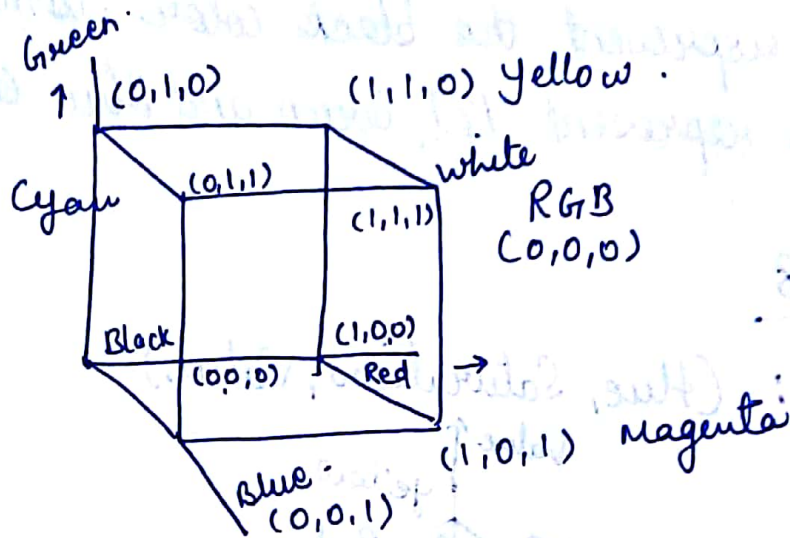 Green.
(0,1,0)
(1,1,0) Yellow.
Cyan
(0,1,1)
white
(1,1,1)
RGB
(0,0,0)
Black
(0,0,0)
(1,0,0)
Red
(1,0,1) Magenta
Blue.
(0,0,1)